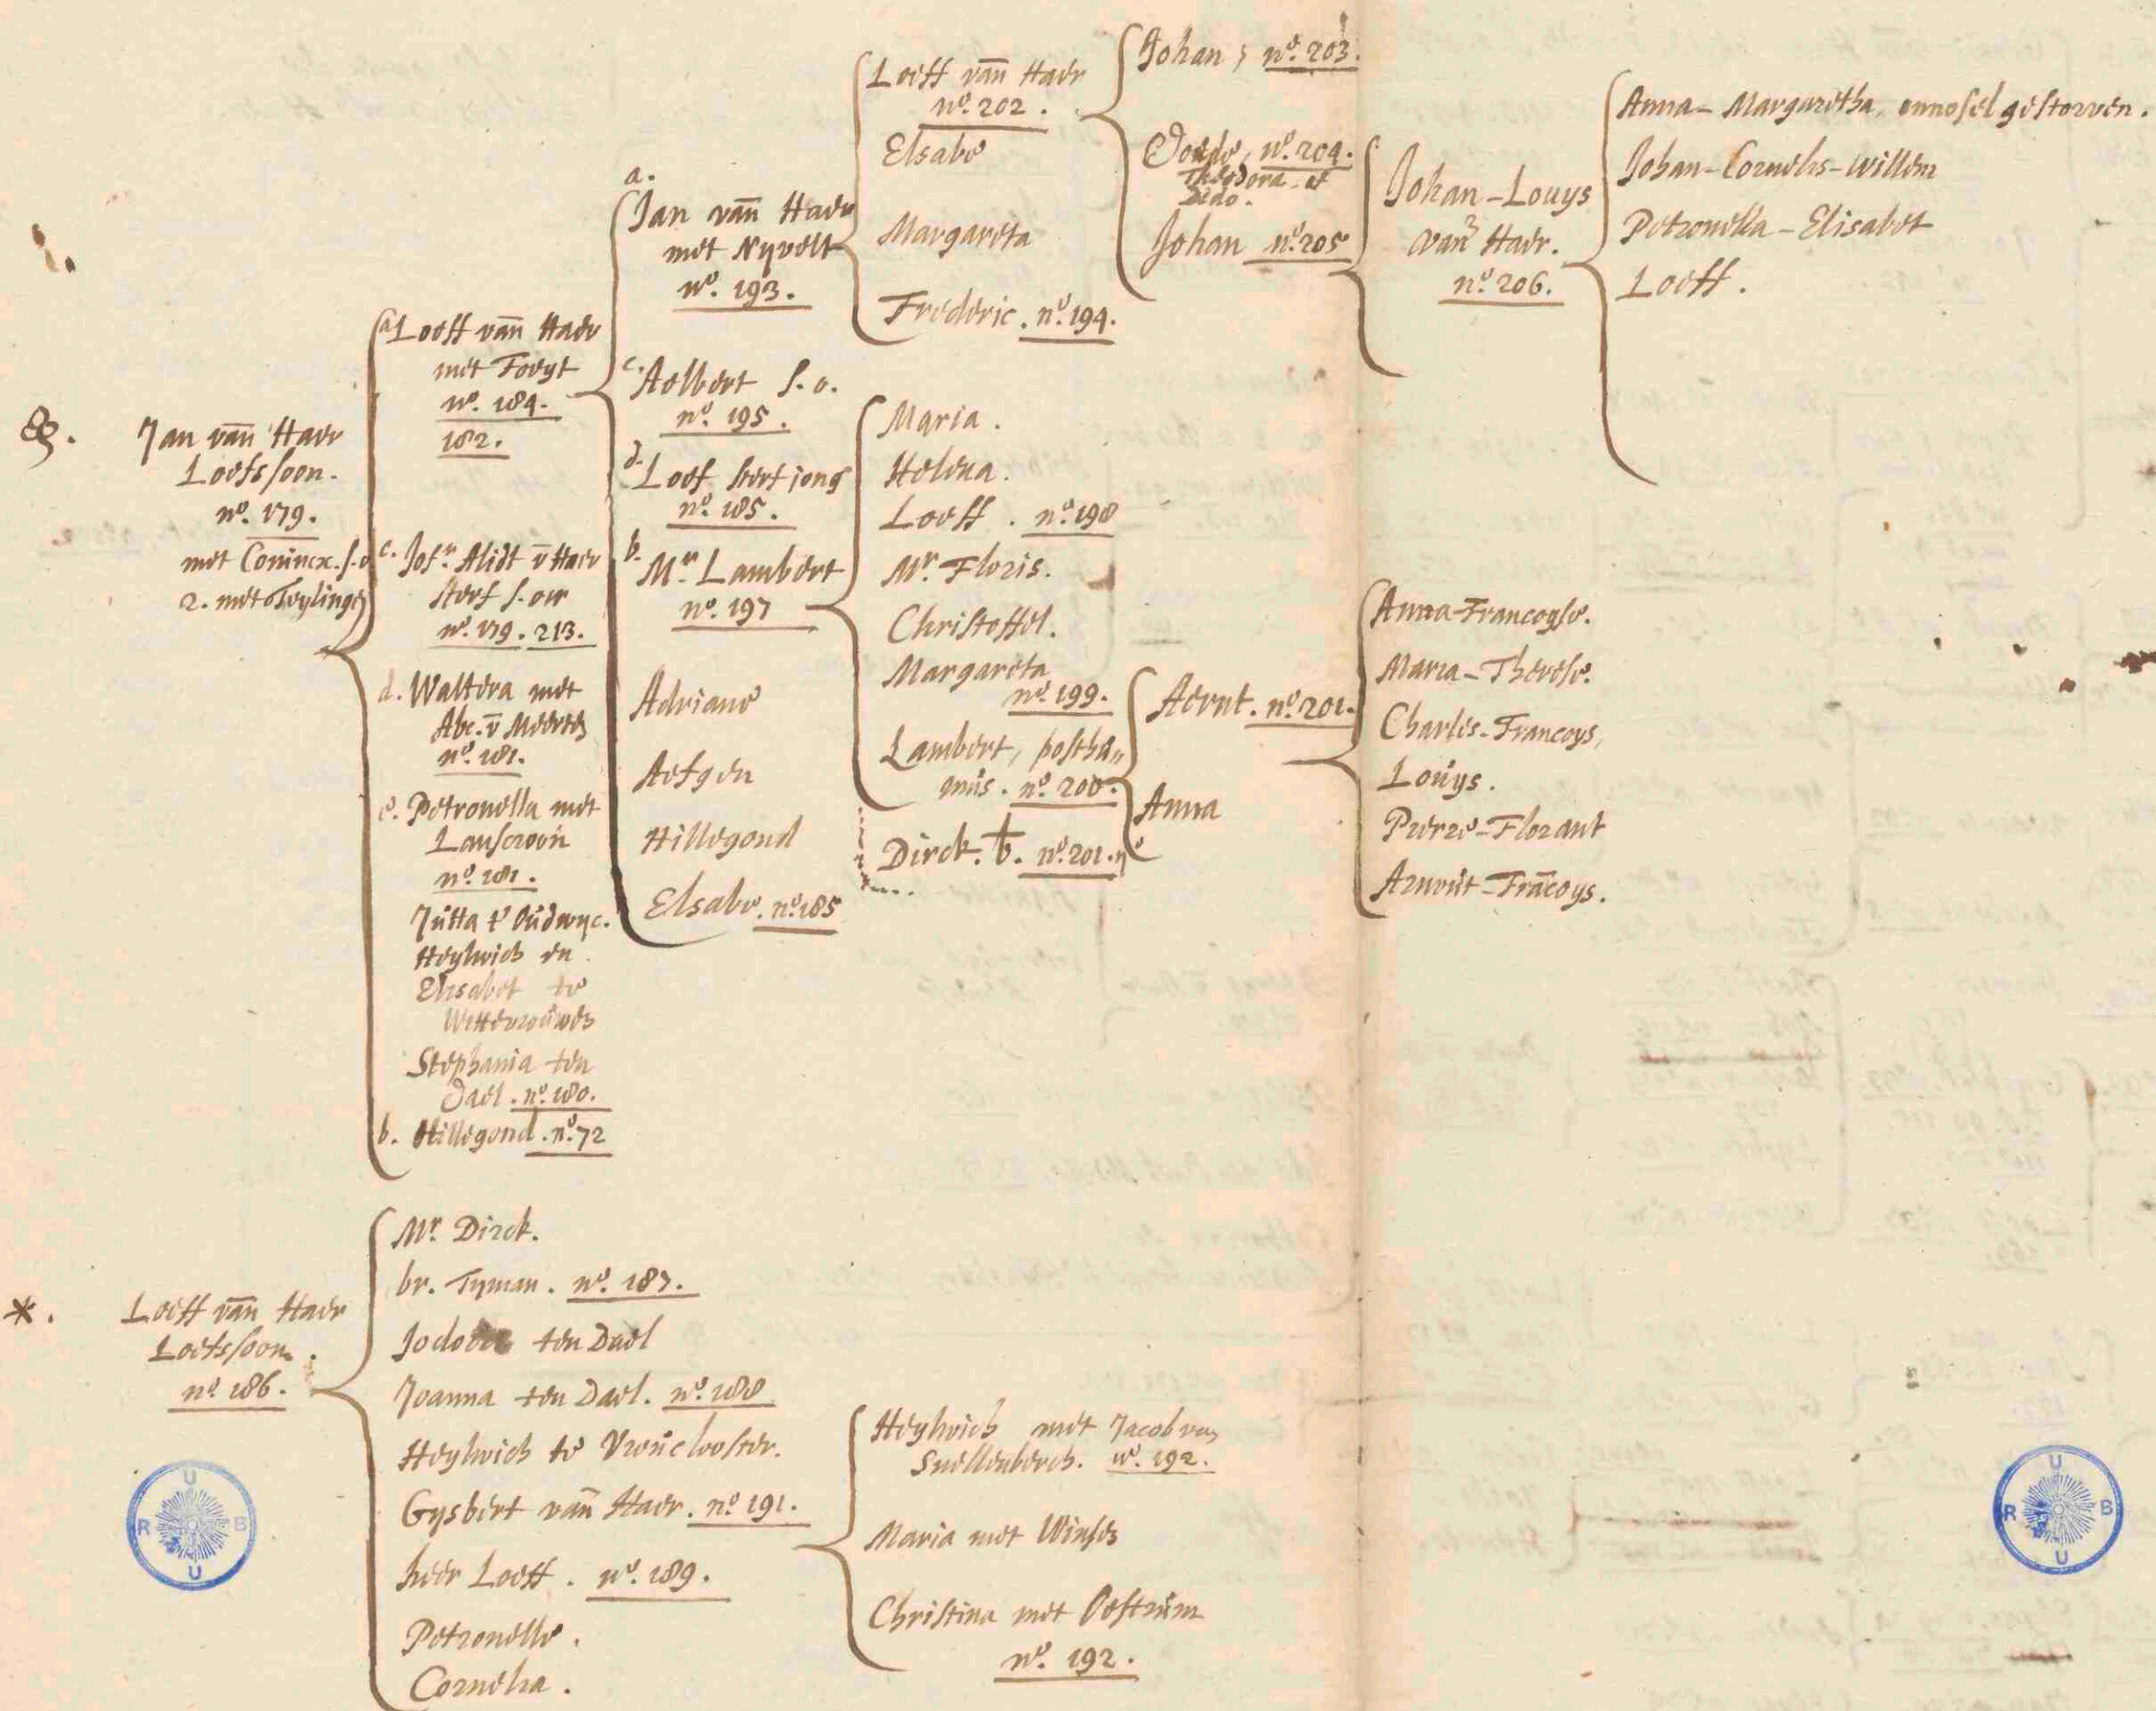 &.
Jan van Haer
Loefssoon.
no. 179.
met Conincx. s.o
2. met Teylingen
a. Loeff van Haer
met Foeyt
no. 184.
182.
c. Jofr. Alidt v Haer
sterf s. oir
no. 179. 213.
d. Waltera met
Abc. v Meerten
no. 181.
e. Petronella met
Lanscroon
no. 181.
Jutta t' Oudwyc.
Heylwich en
Elisabet te
Wittevrouwen
Stephania ten
Dael. no. 180.
b. Hillegond. no. 72
a.
Jan van Haer
met Nyvelt
no. 193.
c. Aelbert s. o.
no. 195.
d. Loef sterf jong
no. 185.
b. Mr. Lambert
no. 197
Adriane
Aefgen
Hillegond
Elsabe. no. 185
Loeff van Haer
no. 202.
Elsabe
Margareta
Frederic. no. 194.
Maria.
Helena.
Loeff. no. 198
Mr. Floris.
Christoffel.
Margareta
no. 199.
Lambert, posthu„
mus. no. 200.
Dirck. b. no. 201.
Johan, no. 203.
no. 204.
Theodora et
Dedo.
Johan no. 205
Aernt. no. 201.
Anna
Johan-Louys
van Haer.
no. 206.
Anna-Margaretha, onnosel gestorven.
Johan-Cornelis-Willem
Petronella-Elisabet
Loeff.
Anna-Francoyse.
Maria-Therese.
Charles-Francoys,
Louys.
Pierre-Florant
Arnout-Francoys.
*.
Loeff van Haer
Loefssoon.
no. 186.
Mr. Dirck.
br. Tyman. no. 187.
ten Dael
Joanna ten Dael. no. 188
Heylwich te Vrouclooster.
Gysbert van Haer. no. 191.
heer Loeff. no. 189.
Petronelle.
Cornelia.
Heylwich met Jacob van
Snellenberch. no. 192.
Maria met Winsen
Christina met Oostrum
no. 192.
U
R B
U
U
R B
U